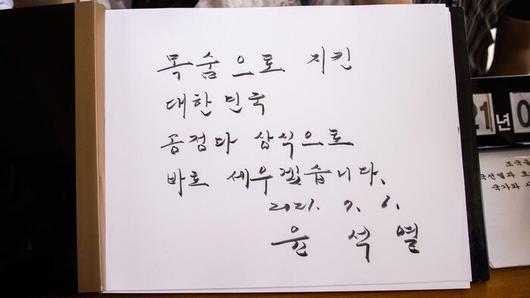 목숨으로 지킨
대한민국
공정과 상식으로
바로 세우겠습니다.
2021. 7. 6.
윤 석 열
21년 0
조국을
국선열과 호
국가와